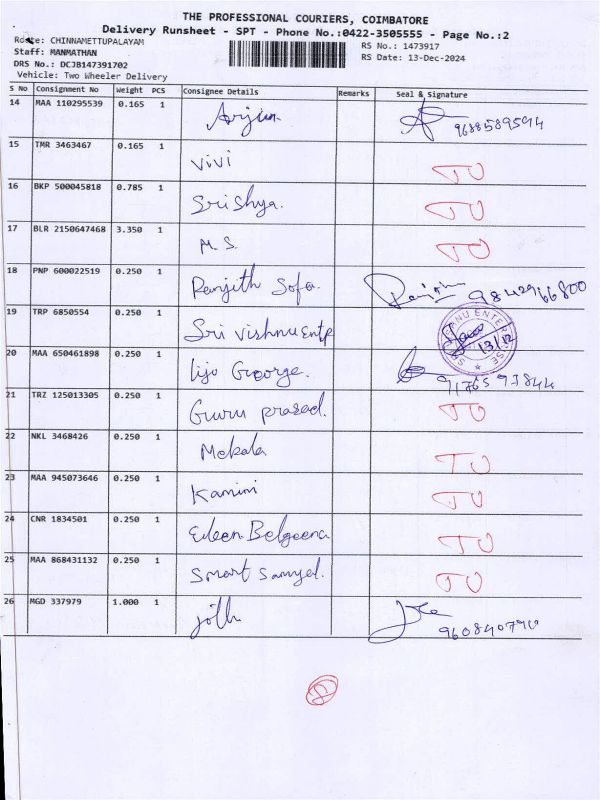 THE PROFESSIONAL COURIERS, COIMBATORE
Delivery Runsheet - SPT - Phone No.:0422-3505555 - Page No.:2
Route: CHINNAMETTUPALAYAM
RS No.: 1473917
Staff: MANMATHAN
RS Date: 13-Dec-2024
DRS No.: DCJB147391702
Vehicle: Two Wheeler Delivery
S No Consignment No Weight PCS Consignee Details Remarks Seal & Signature
14 MAA 110295539 0.165 1 Arijun 9688589594
15 TMR 3463467 0.165 1 Vivi TO
16 BKP 500045818 0.785 1 Srishya. TO
17 BLR 2150647468 3.350 1 M.S. TO
18 PNP 600022519 0.250 1 Ranjith Sofa. 9842966800
19 TRP 6850554 0.250 1 Sri Vishnu Entp 13/12
20 MAA 650461898 0.250 1 Lijo George. 9176593844
21 TRZ 125013305 0.250 1 Guru prasad. TO
22 NKL 3468426 0.250 1 Mekala TO
23 MAA 945073646 0.250 1 Kamini TO
24 CNR 1834501 0.250 1 Eileen Belgeena TO
25 MAA 868431132 0.250 1 Smart Samyel. TO
26 MGD 337979 1.000 1 9608407
8